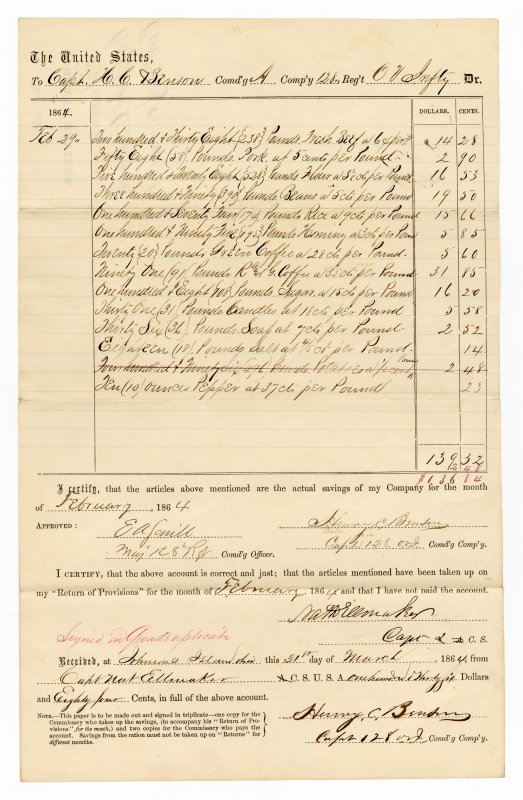 The United States,
To Capt. H. C. Benson Comd'g A Comp'y 128, Reg't O V Infty Dr.
1864. DOLLARS. CENTS.
Feb 29" Two hundred & Thirty Eight (238) Pounds Fresh Beef a 6 cts per lb 14 28
Fifty Eight (58) Pounds Pork at 5 cents per Pound 2 90
Five hundred & twenty Eight (528) Pounds Flour a cts per Pound 16 53
Three hundred & Ninety (390) Pounds Beans a 5 cts per Pound 19 50
One hundred & Seventy Four (174) Pounds Rice a 9 cts per Pound 15 66
One hundred & Ninety Five (195) Pounds Hominy a 3 cts per Pound 5 85
Twenty (20) Pounds Green Coffee a 28 cts per Pound 5 60
Ninety One (91) Pounds R & G Coffee a 35 cts per Pound 31 85
One hundred & Eight (108) Pounds Sugar a 15 cts per Pound 16 20
Thirty One (31) Pounds Candles at 18 cts per Pound 5 58
Thirty Six (36) Pounds Soap at 7 cts per Pound 2 52
Eighteen (18) Pounds Salt at cts per Pound 14
Four hundred & Ninety Six (496) Pounds Potatoes a 1/2 cent Pound 2 48
Ten (10) ounces Pepper at 37 cts per Pound 23
139 32
2 48
$136 84
I certify, that the articles above mentioned are the actual savings of my Company for the month
of February 1864
APPROVED: Henry C Benson
Capt 128 OVI Comd'g Comp'y.
Maj 128 Rgt Comd'g Officer.
I CERTIFY, that the above account is correct and just; that the articles mentioned have been taken up on
my "Return of Provisions" for the month of February 1864 and that I have not paid the account.
Nat Ellmaker
Capt & C. S.
Signed in Quadruplicate
Received, at Johnsons Island Ohio this 21st day of March 1864 from
Capt Nat Ellmaker C. S. U. S. A. One hundred & Thirty Six Dollars
and Eighty four Cents, in full of the above account.
NOTE.—This paper is to be made out and signed in triplicate—one copy for the
Commissary who takes up the savings, (to accompany his "Return of Pro-
visions" for the month,) and two copies for the Commissary who pays the
account. Savings from the ration must not be taken up on "Returns" for
different months.
Henry C. Benson
Capt 128 OVI Comd'g Comp'y.